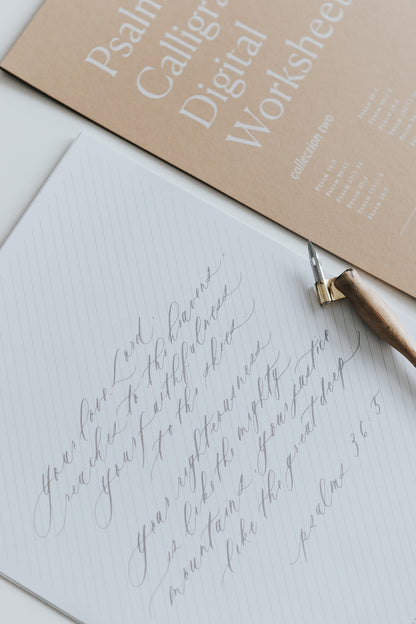 Psalm
Calligra
Digital
Worksheet
collection two
your love Lord,
reaches to the heavens,
your faithfulness
to the skies.
your righteousness
is like the mighty
mountains, your justice
like the great deep
psalms 36:5